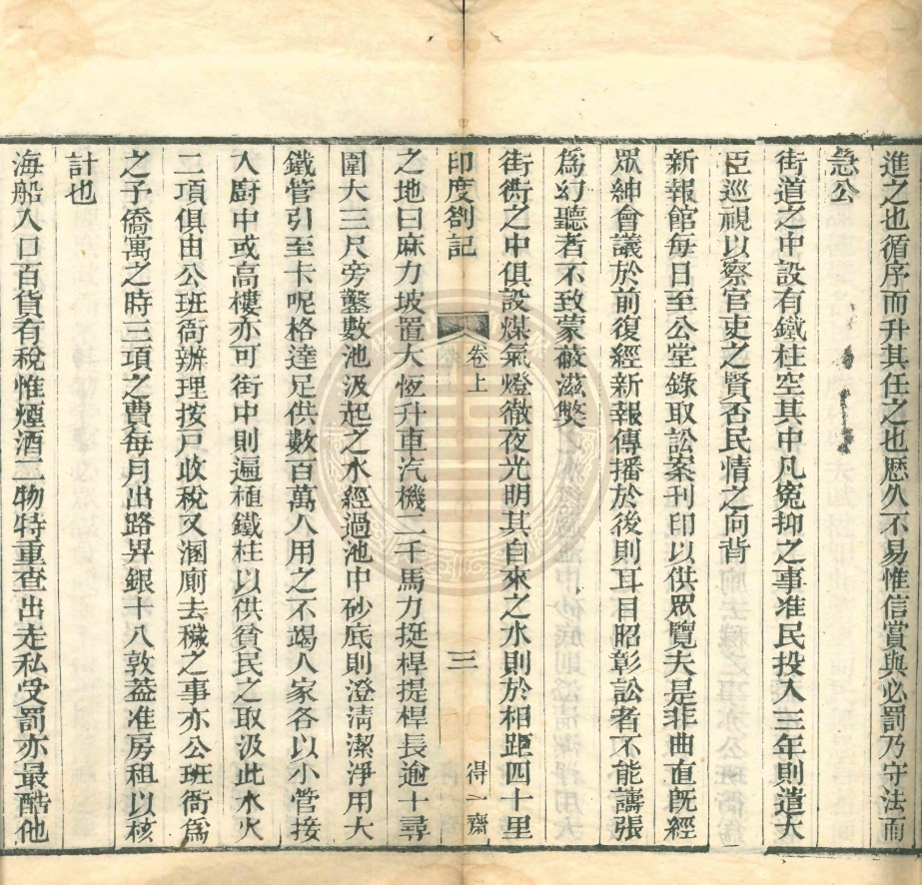 進之也循序而升其任之也歷久不易惟信賞與必罰乃守法而
急公
街道之中設有鐵柱空其中凡寃抑之事准民投入三年則遣大
臣巡視以察官吏之賢否民情之向背
新報館每日至公堂錄取訟案刊印以供眾覽夫是非曲直旣經
眾紳會議於前復經新報傳播於後則耳目昭彰訟者不能譸張
爲幻聽者不致蒙蔽滋獘
街衖之中俱設煤氣燈徹夜光明其自來之水則於相距四十里
印度劄記 卷上 三 得一齋
之地曰麻力坡置大恆升車汽機二千馬力挺桿提桿長逾十尋
圍大三尺旁鑿數池汲起之水經過池中砂底則澄淸潔淨用大
鐵管引至卡呢格達足供數百萬人用之不竭人家各以小管接
入廚中或高樓亦可街中則遍植鐵柱以供貧民之取汲此水火
二項俱由公班衙辦理按戸收稅又溷廁去穢之事亦公班衙爲
之予僑寓之時三項之費每月出路昇銀十八敦葢准房租以核
計也
海船入口百貨有稅惟煙酒二物特重查出走私受罰亦最酷他